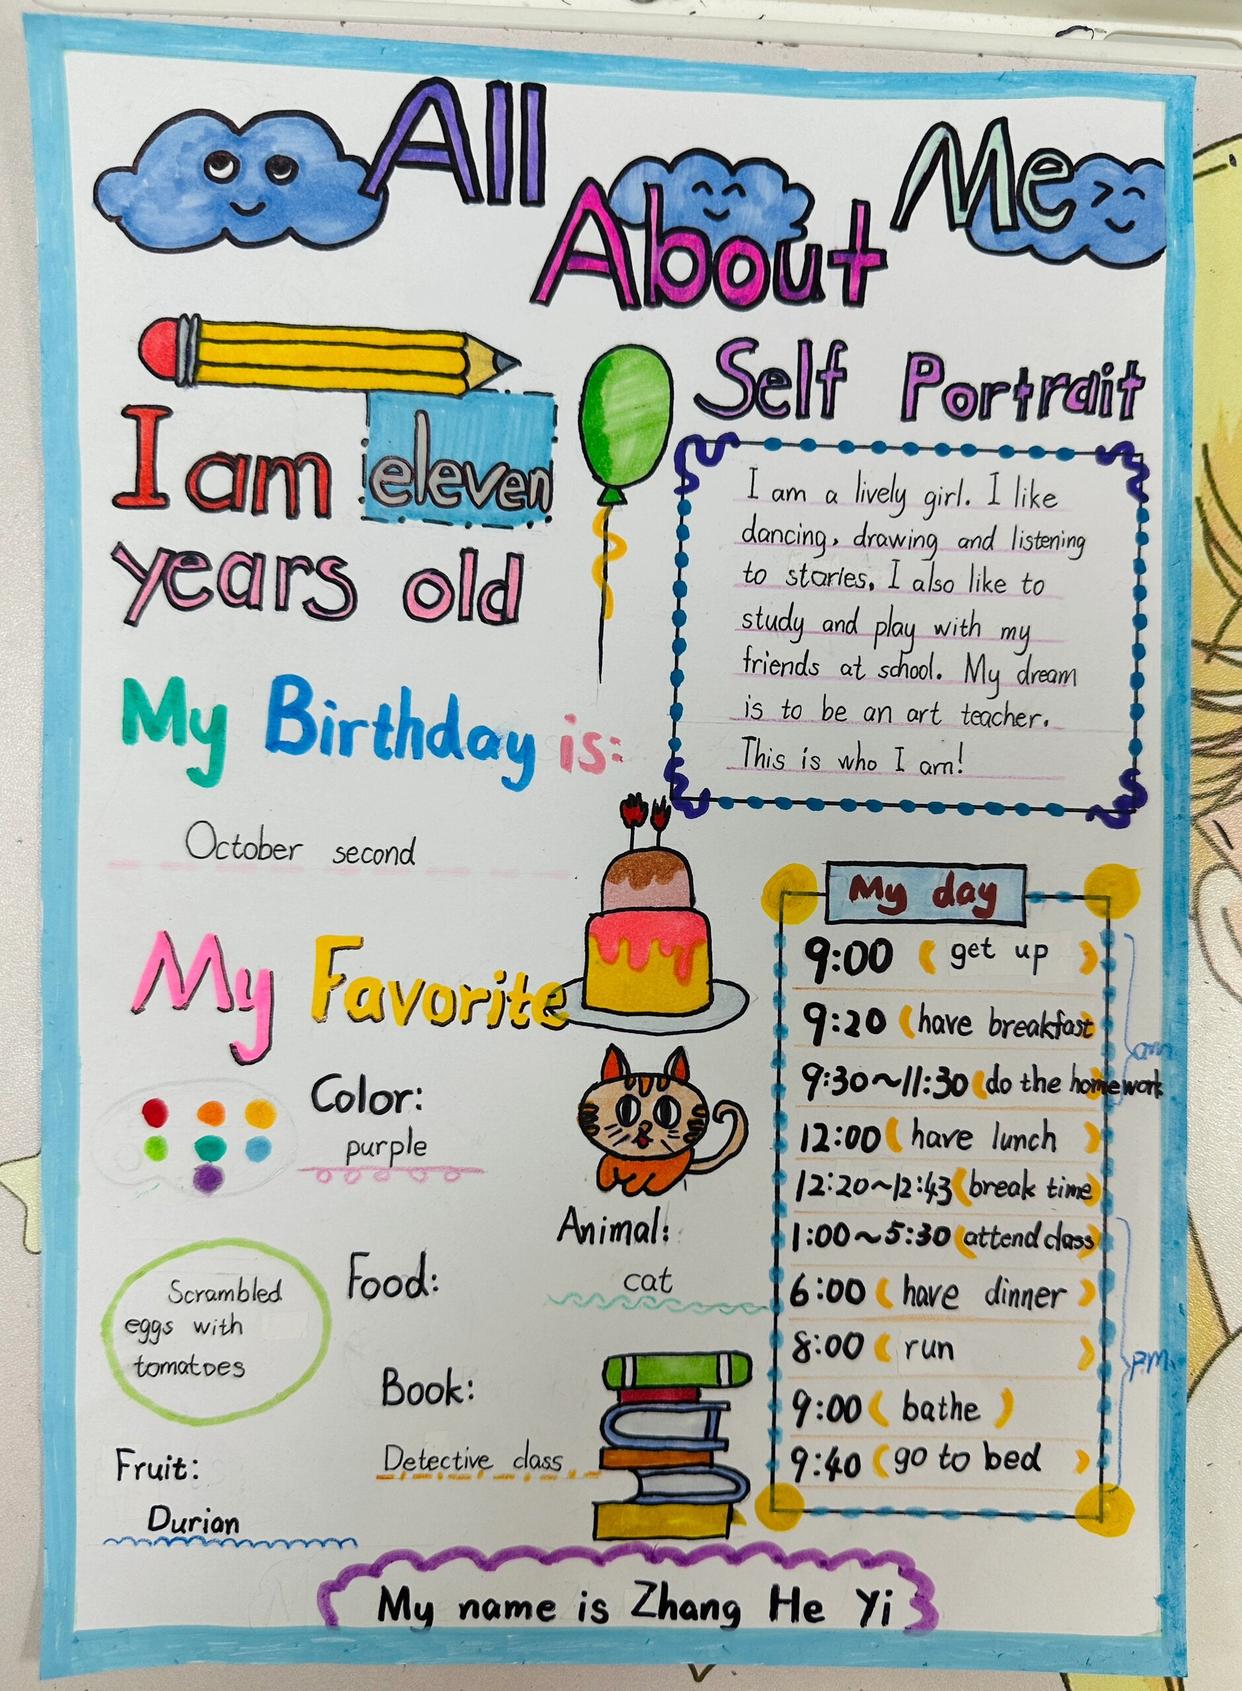 All About Me
I am eleven
years old
Self Portrait
I am a lively girl. I like
dancing, drawing and listening
to stories. I also like to
study and play with my
friends at school. My dream
is to be an art teacher.
This is who I am!
My Birthday is:
October second
My Favorite
Color:
purple
Animal:
cat
Food:
Scrambled
eggs with
tomatoes
Book:
Detective class
Fruit:
Durian
My day
9:00 ( get up )
9:20 (have breakfast)
9:30~11:30 (do the homework
12:00 ( have lunch )
12:20~12:43 (break time)
1:00~5:30 (attend class)
6:00 ( have dinner )
8:00 ( run )
9:00 ( bathe )
9:40 (go to bed )
am
p.m.
My name is Zhang He Yi